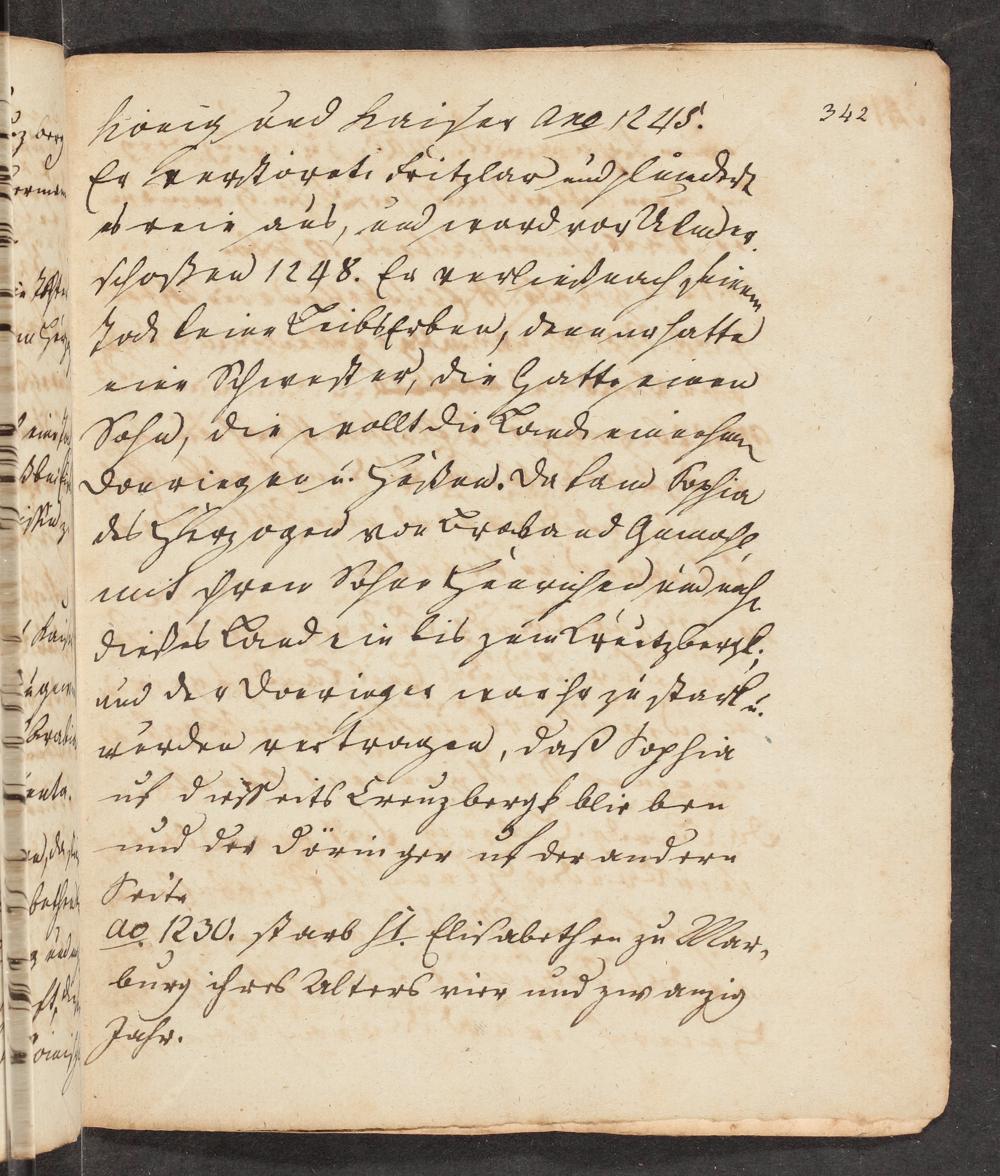 342
König und Kaiser Ano 1245.
Er verstöreti Fritzlar und plündert
es rein aus, und ward vor Ulm er-
schoßen 1248. Er verließ nach seinem
Tode keine LeibsErben, denn er hatte
eine Schwester, die hatte einen
Sohn, die wollt die Lande einnehmen
Doeringen u. Heßen. Da kam Sophia
des Herzogen von Braband Gemahl,
mit ihrem Sohne Henrichen und nahm
dießes Land ein bis zum Creutzbergk;
und der Doeringer war ihr zu stark u.
wurden vertragen, daß Sophia
uf dießeits Creuzbergk blieben
und der Döringer uf der andern
Seite
ao. 1230. starb St. Elisabethen zu Mar-
burg ihres Alters vier und zwanzig
Jahr.